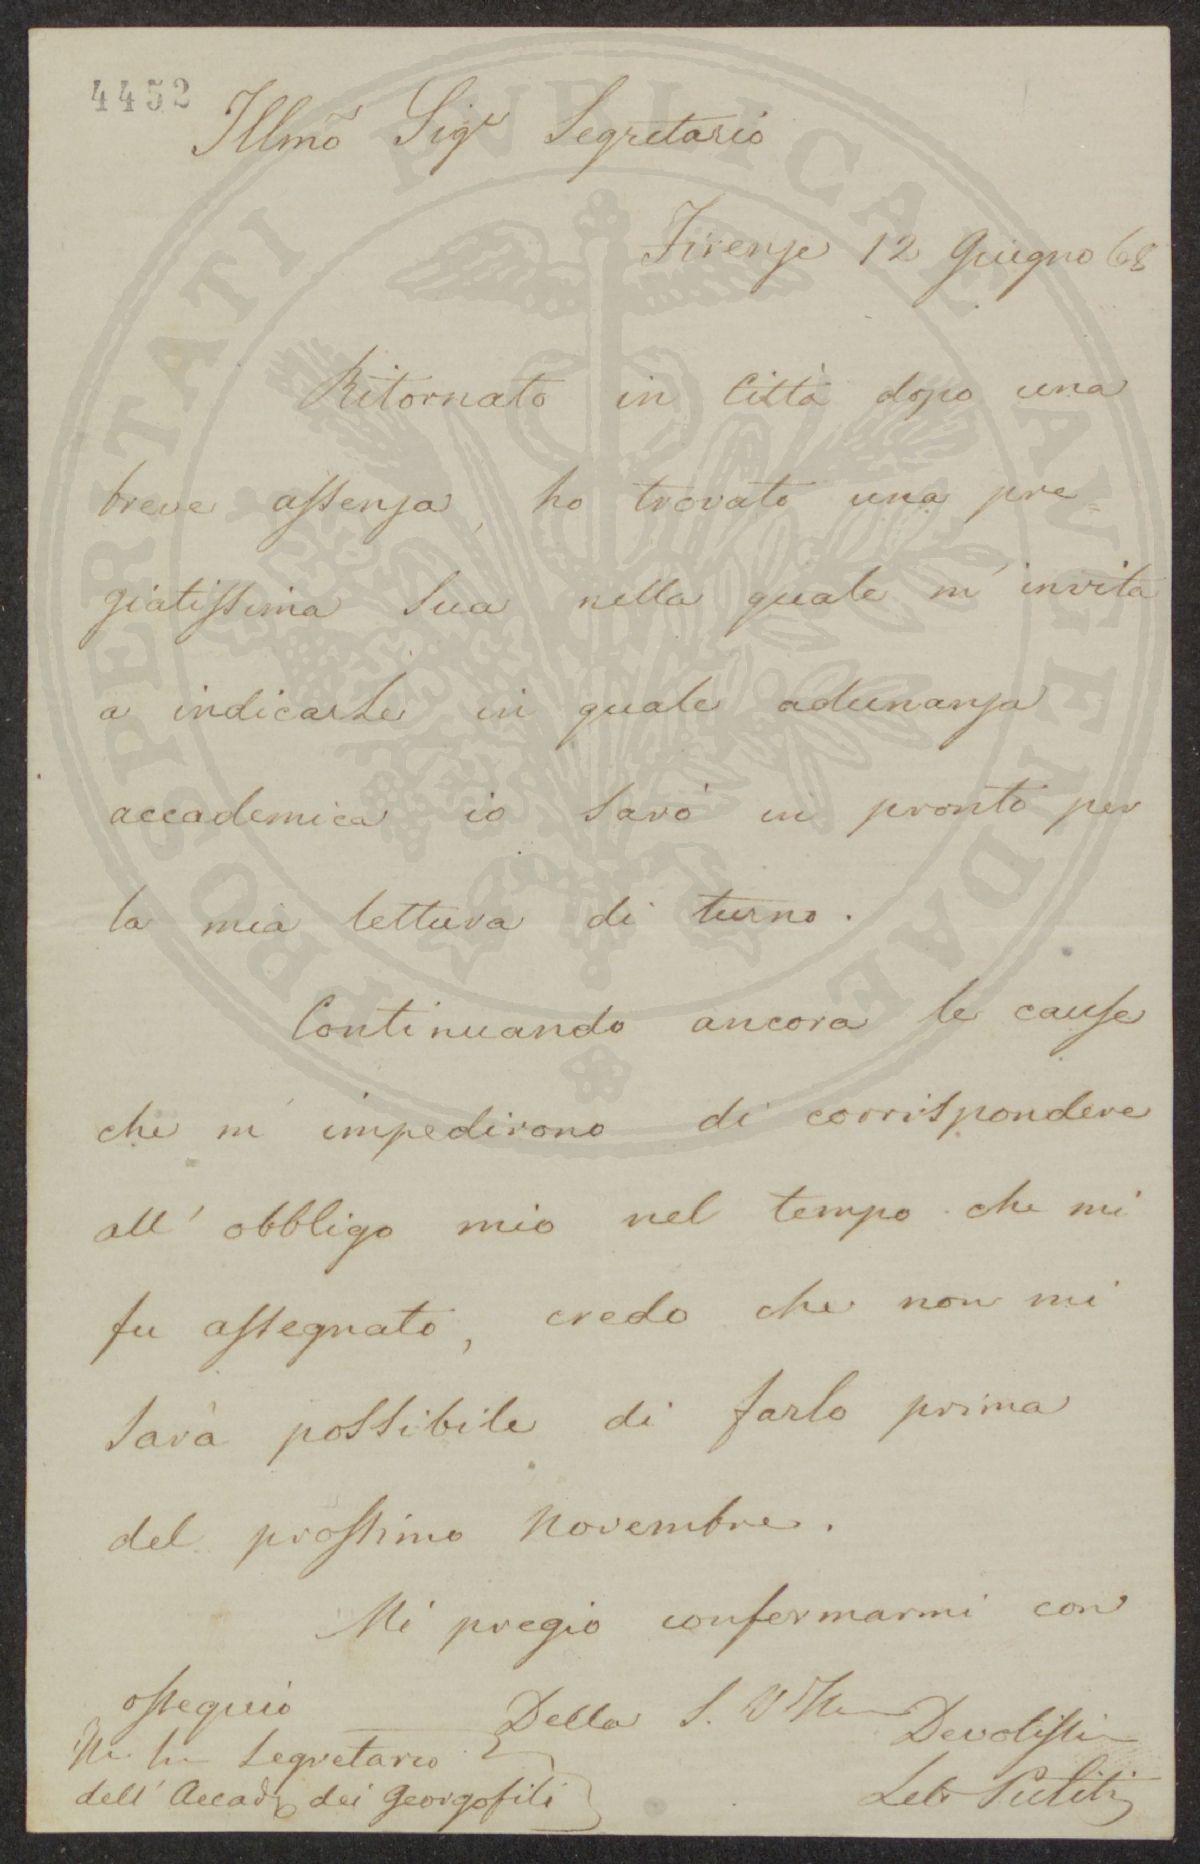 4452
Illmo Sigr Segretario
Firenze 12 Giugno 68
Ritornato in Città dopo una
breve assenza, ho trovato una pre=
giatissima Sua nella quale m'invita
a indicarLe in quale adunanza
accademica io sarò in pronto per
la mia lettura di turno.
Continuando ancora le cause
che m'impedirono di corrispondere
all'obbligo mio nel tempo che mi
fu assegnato, credo che non mi
sarà possibile di farlo prima
del prossimo Novembre.
Mi pregio confermarmi con
ossequio
Della S. V. Ill
Devotiss
Leto Puliti
Segretario
dell' Accad dei Georgofili
PROSPERITATI PVBLICAE AVGENDAE